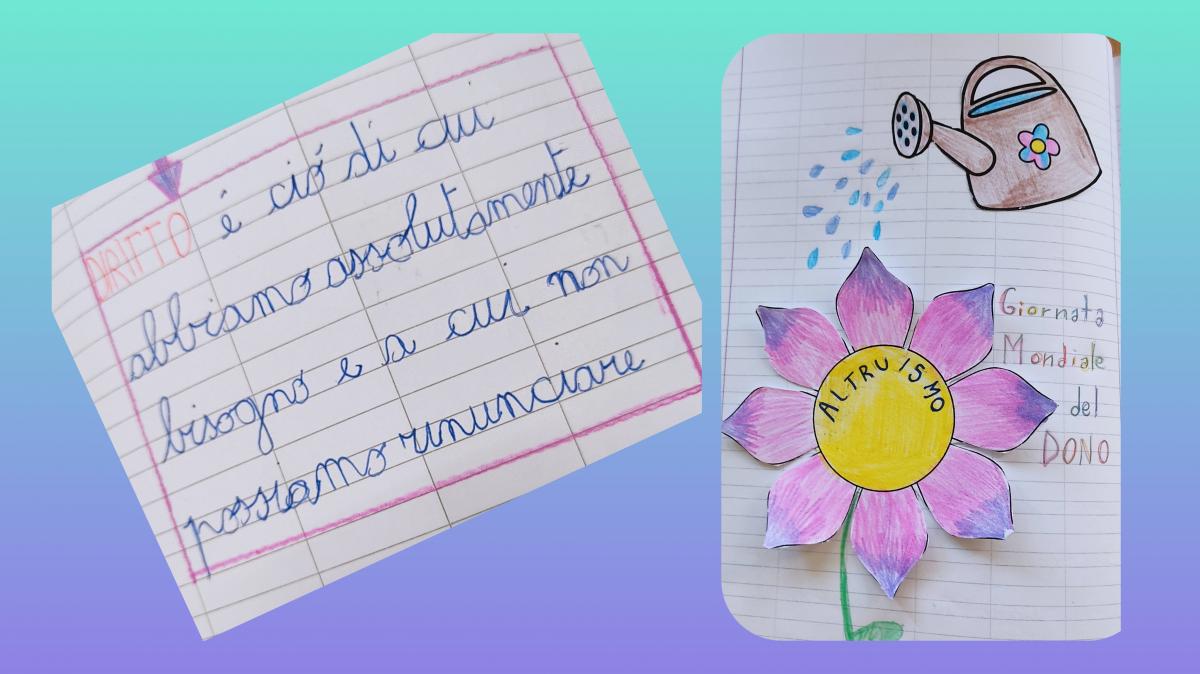 DIRITTO é ció di cui
abbiamo assolutamente
bisogno e a cui non
possiamo rinunciare
ALTRUISMO
Giornata
Mondiale
del
DONO